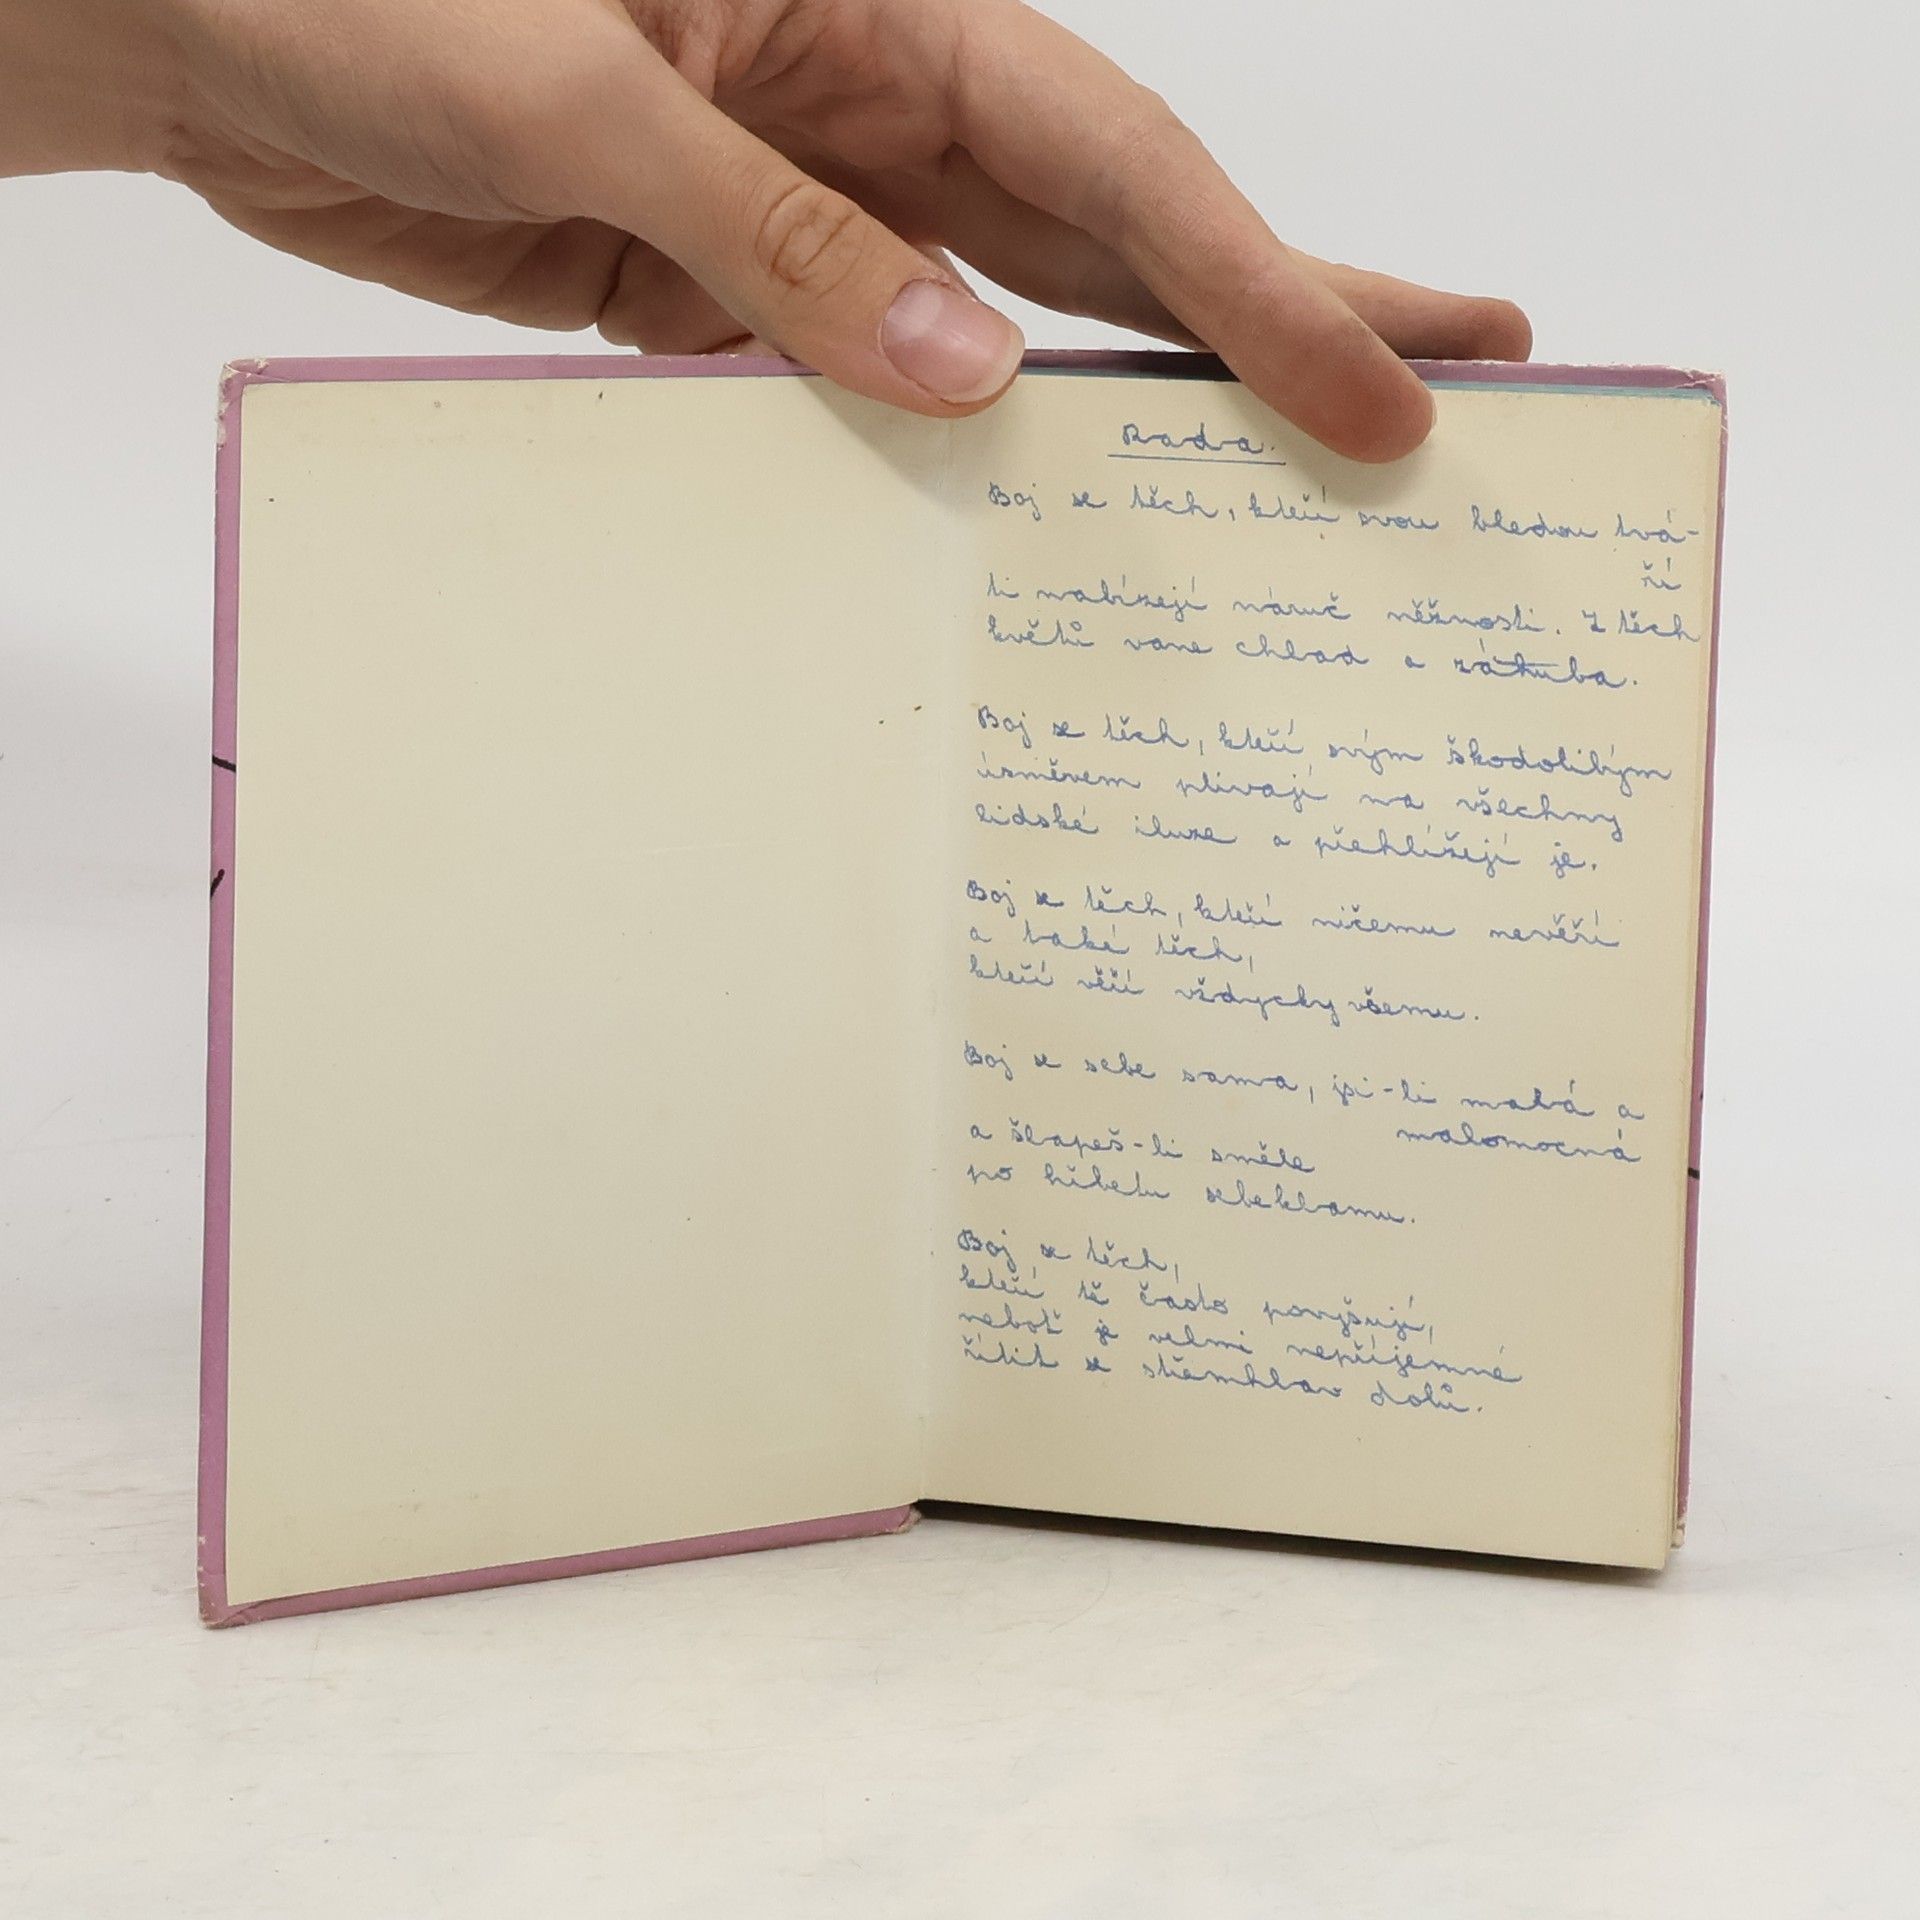 Rada.
Boj se těch, kteří svou bledou tvá-
ří
ti nabízejí náruč něžnosti. Z těch
květů vane chlad a záhuba.
Boj se těch, kteří svým škodolibým
úsměvem plivají na všechny
lidské iluze a přehlížejí je.
Boj se těch, kteří ničemu nevěří
a také těch,
kteří věří vždycky všemu.
Boj se sebe sama, jsi-li malá a
malomocná
a šlapeš-li směle
po hřbetu sebeklamu.
Boj se těch,
kteří tě často povyšují,
neboť je velmi nepříjemné
řítit se střemhlav dolů.